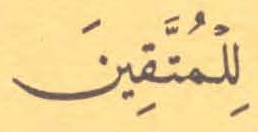 لِلْمُتَّقِينَ